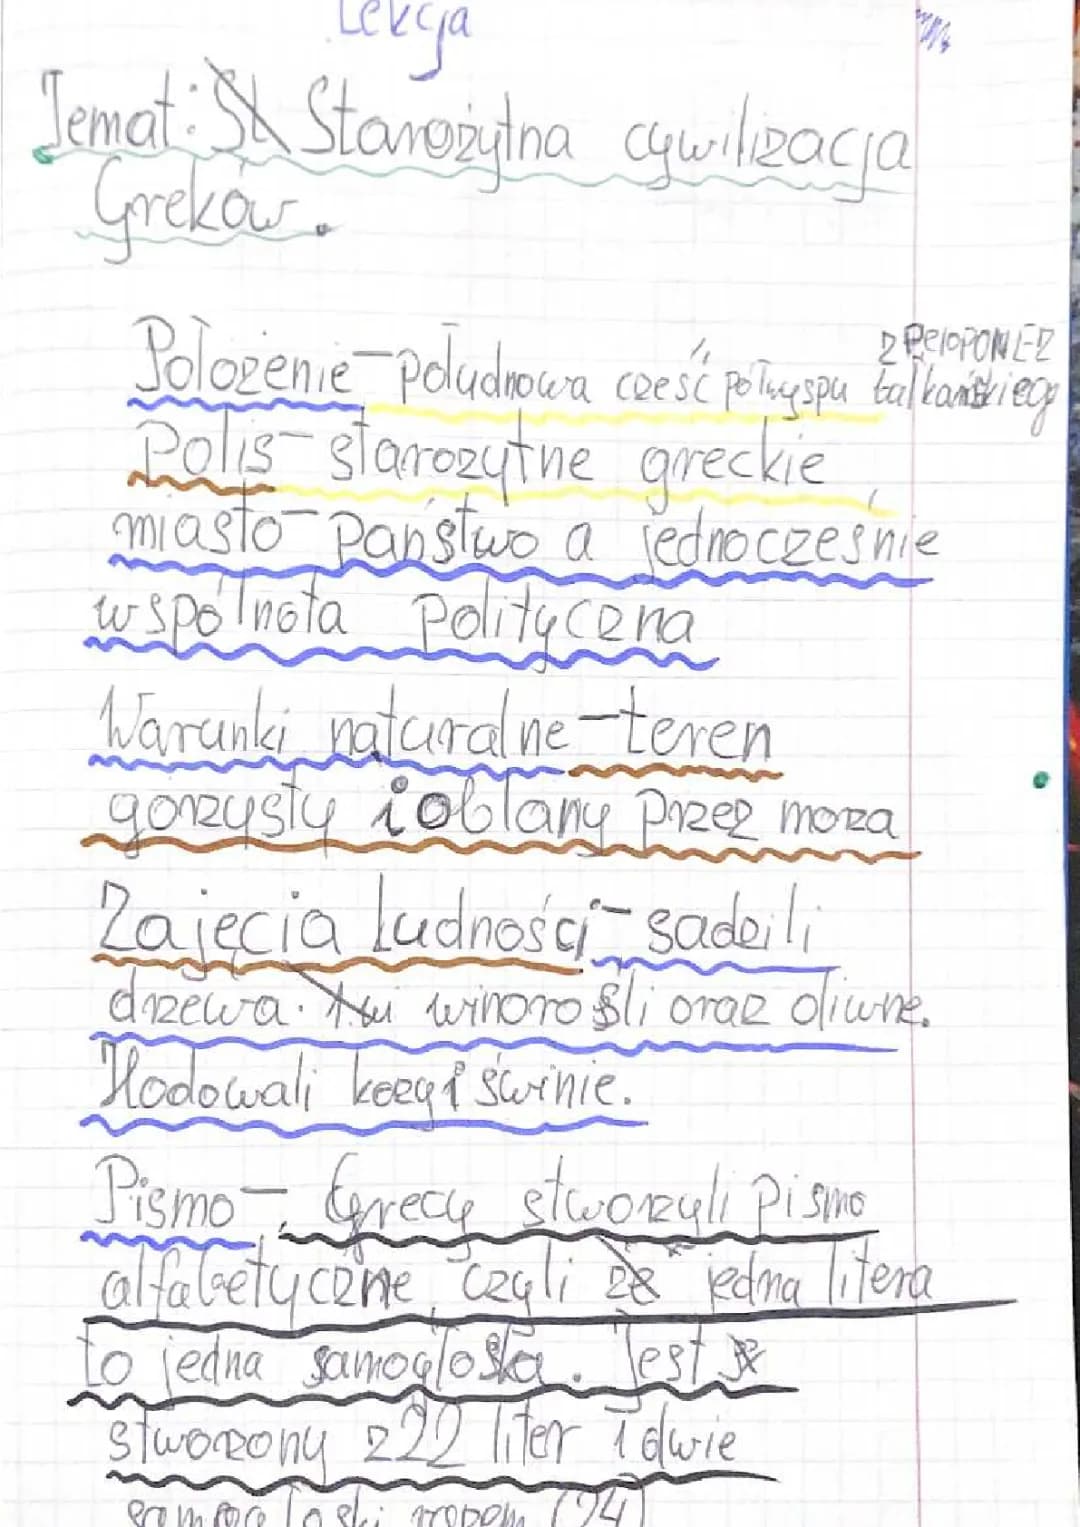 Lekcja
Temat: St Starożytna cywilizacja
Greków.
z PeloPONEZ
Polozenie - południowa część półwyspu bałkańskiego
Polis - starozytne greckie
miasto - państwo a jednocześnie
wspólnota polityczna
Warunki naturalne - teren
gorzysty i oblany przez moza
Zajęcia ludności - sadzili
drzewa. winorośli oraz oliwne.
Hodowali kozy i świnie.
Pismo - Grecy stworzyli pismo
alfabetyczne, czyli że jedna litera
to jedna samogłoska. Jest
stworzony z 22 liter i dwie
samogłoski razem (24)